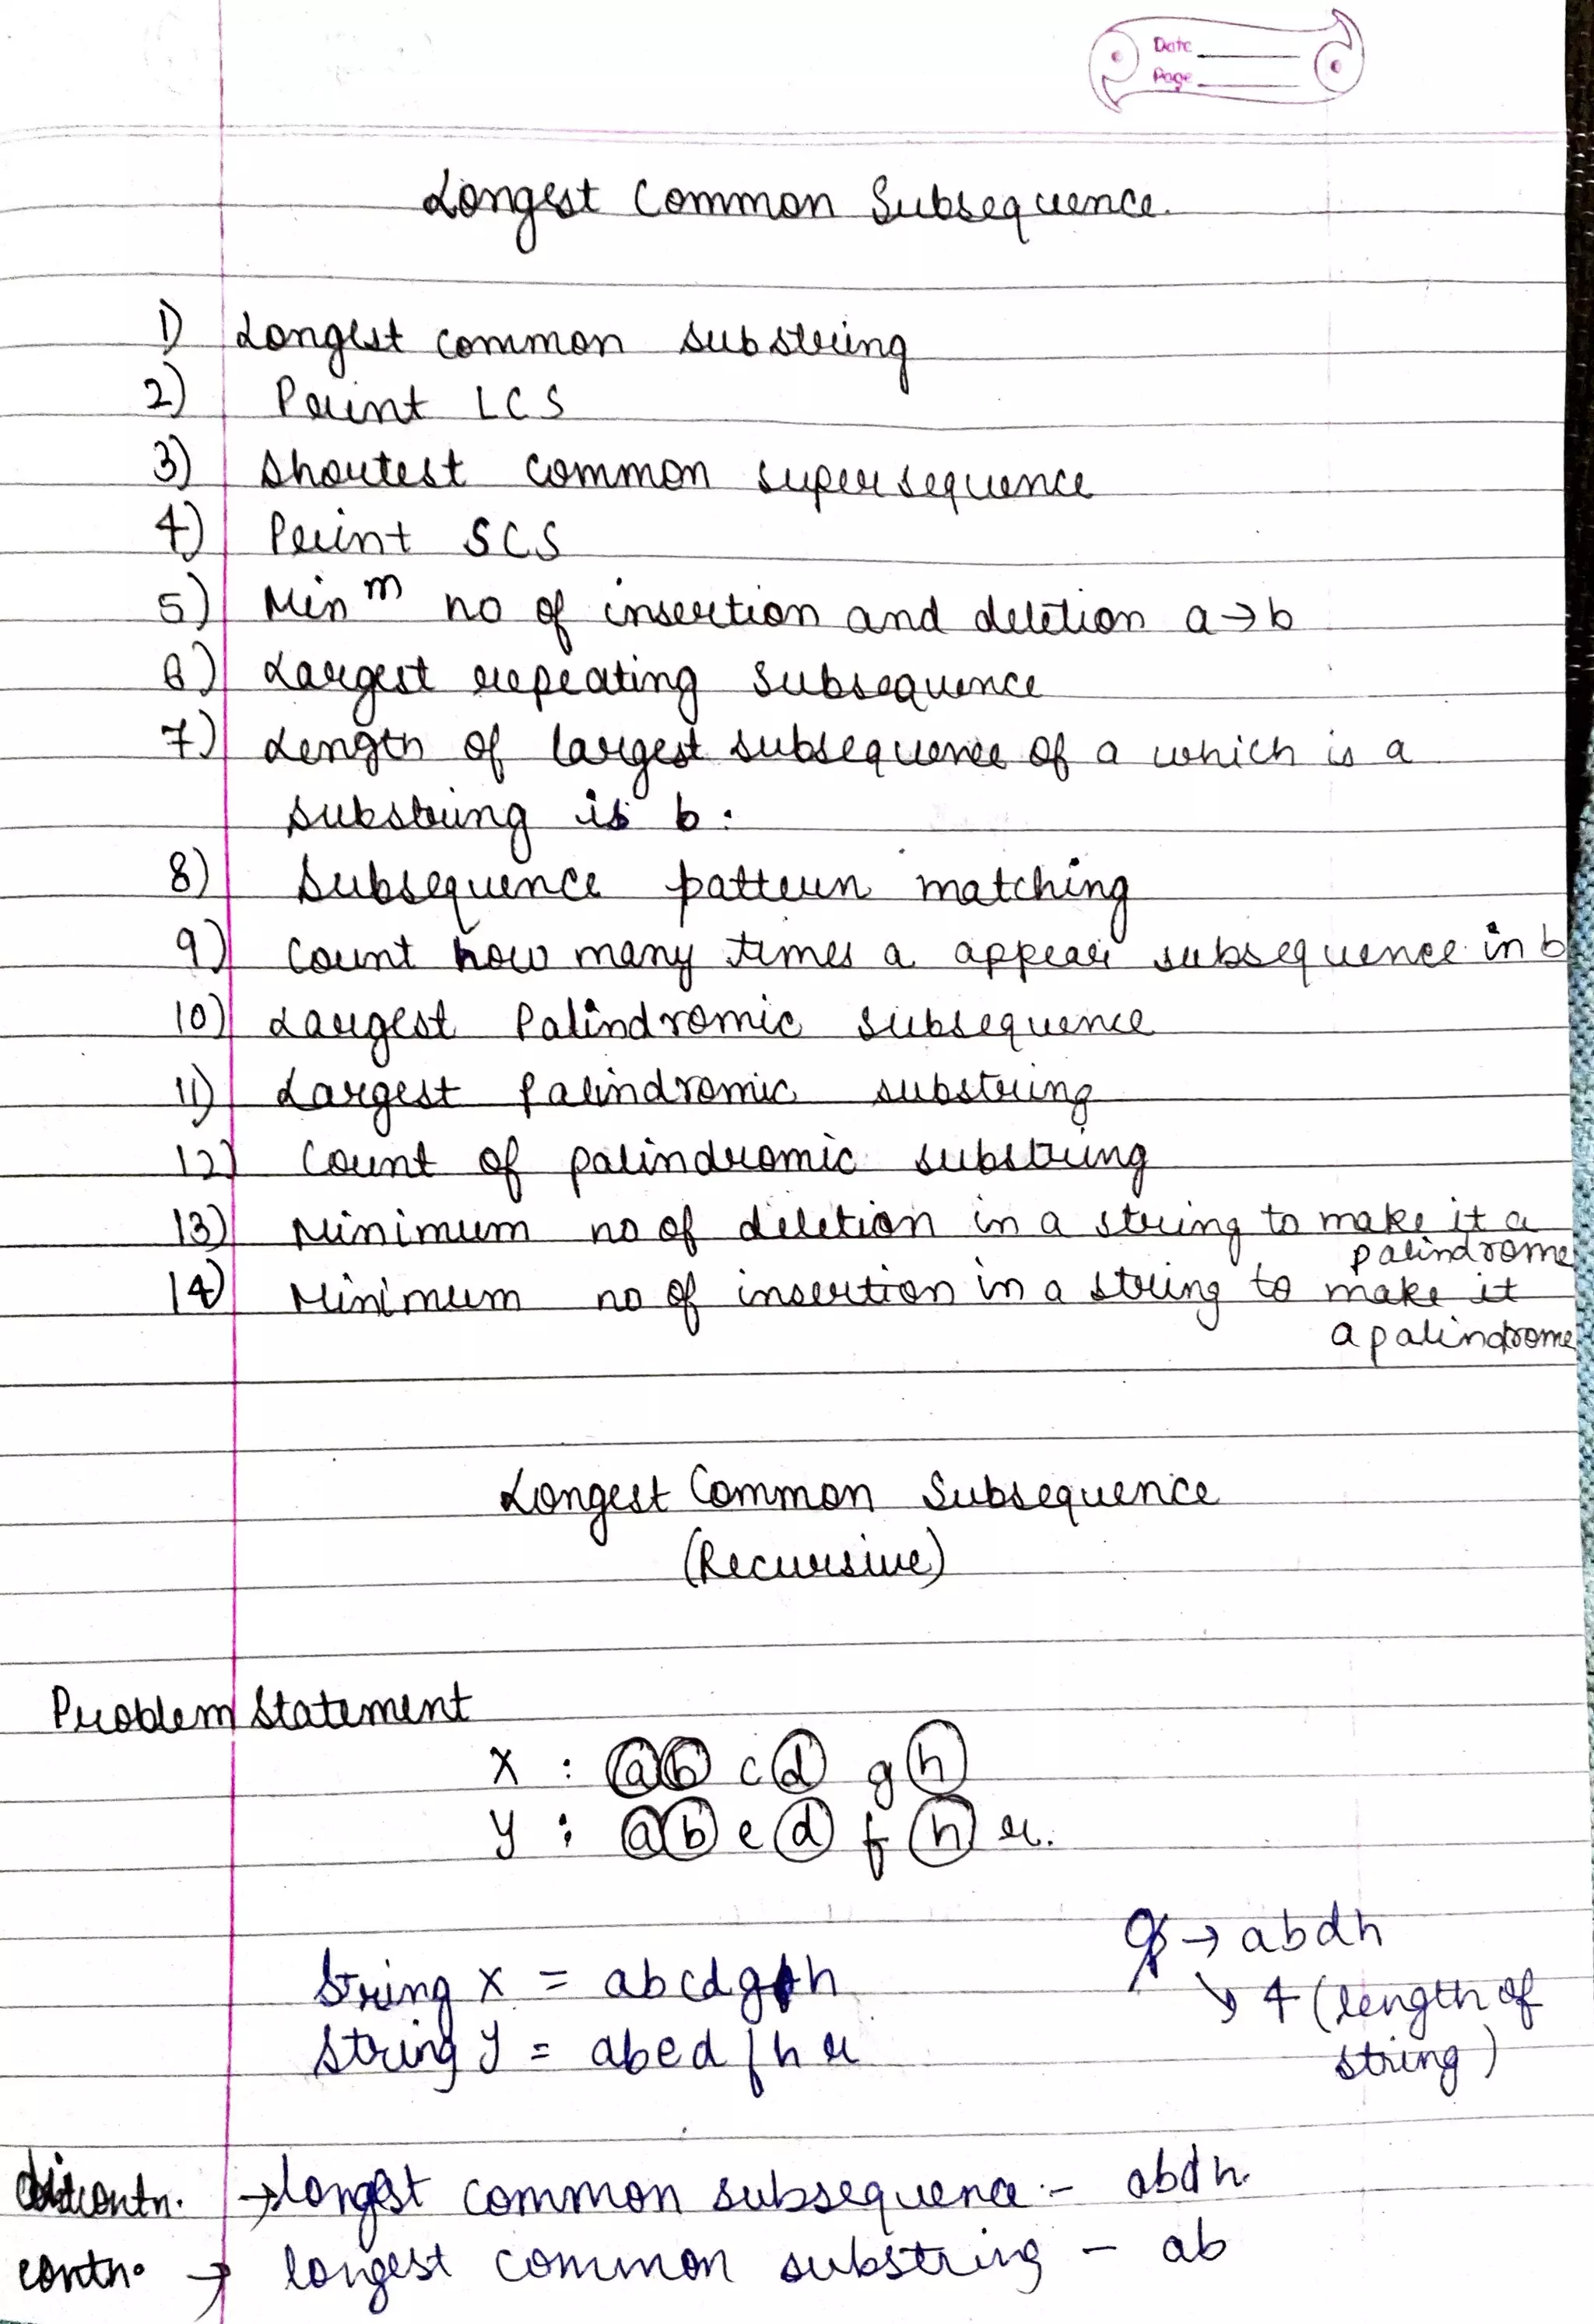 Date
Page
Longest Common Subsequence.
1) Longest common substring
2) Print LCS
3) Shortest common supersequence
4) Print SCS
5) Min^m no of insertion and deletion a→b
6) Largest repeating subsequence
7) Length of largest subsequence of a which is a
substring is b.
8) Subsequence pattern matching
9) Count how many times a appear subsequence in b
10) Largest Palindromic subsequence
11) Largest Palindromic substring
12) Count of palindromic substring
13) Minimum no of deletion in a string to make it a
palindrome
14) Minimum no of insertion in a string to make it
a palindrome
Longest Common Subsequence
(Recursive)
Problem Statement
X : a b c d g h
Y : a b e d f h r.
→ abdh
String X = abcdgh
↘ 4 (length of
String Y = abedfhr
string)
discontn. → longest common subsequence :- abdh.
contn. → longest common substring - ab